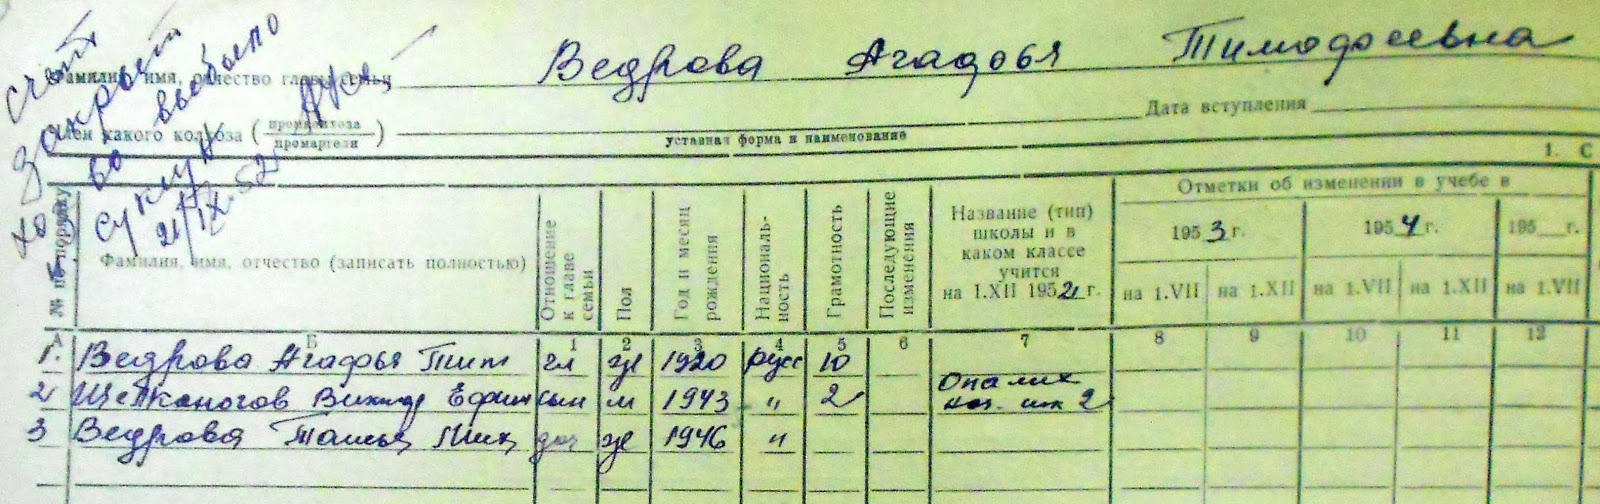 счет
закрыт
хоз-во
выбыло
Суксун
21/IX-52г
Фамилия, имя, отчество главы семьи Ведрова Агафья Тимофеевна
Член какого колхоза (промколхоза / промартели)
уставная форма и наименование
Дата вступления
1. С
№ по порядку
Фамилия, имя, отчество (записать полностью)
Отношение к главе семьи
Пол
Год и месяц рождения
Националь-ность
Грамотность
Последующие изменения
Название (тип) школы и в каком классе учится на 1.XII 1952 г.
Отметки об изменении в учебе в
1953 г. 1954 г. 195 г.
на 1.VII на 1.XII на 1.VII на 1.XII на 1.VII
А Б 1 2 3 4 5 6 7 8 9 10 11 12
1. Ведрова Агафья Тим гл ж 1920 русс 10
2 Щелканогов Виктор Ефим сын м 1943 " 2 Опалих нач. шк 2
3 Ведрова Татья Мих доч ж 1946 "